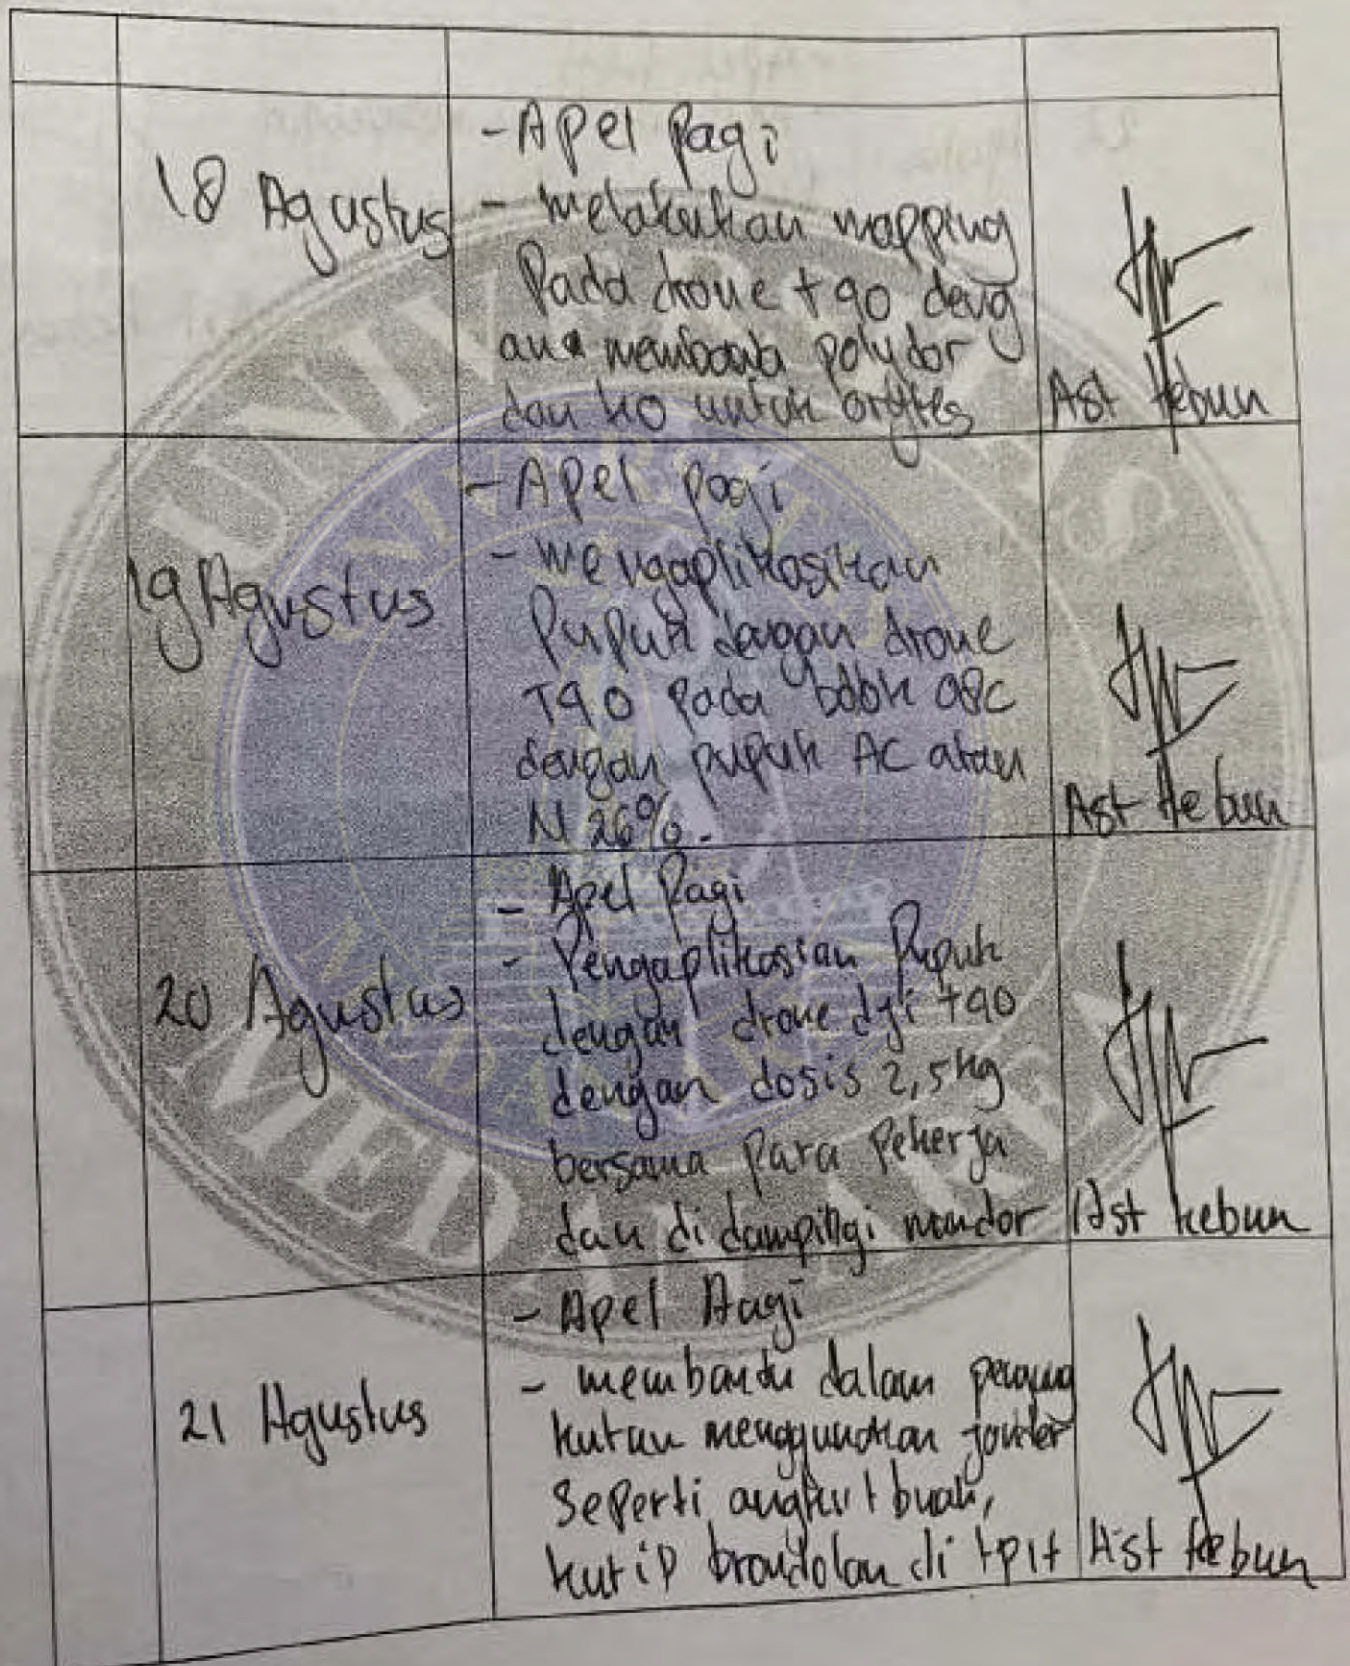 18 Agustus
- Apel pagi
- melakukan mapping
Pada drone t90 deng
an membawa polydor
dan ko untuk oryctes
Ast kebun
19 Agustus
- Apel pagi
- mengaplikasikan
Pupuk dengan drone
T90 Pada blok 08C
dengan pupuk AC atau
N 26%.
Ast kebun
20 Agustus
- Apel Pagi
- Pengaplikasian Pupuk
dengan drone dji t90
dengan dosis 2,5 kg
bersama Para Pekerja
dan di dampingi mandor
Ast kebun
21 Agustus
- Apel Pagi
- membantu dalam pengang
kutan menggunakan jonder
Seperti angkut buah,
kutip brondolan di tph
Ast kebun
UNIVERSITAS
MEDAN AREA
UNIVERSITAS
MEDAN AREA